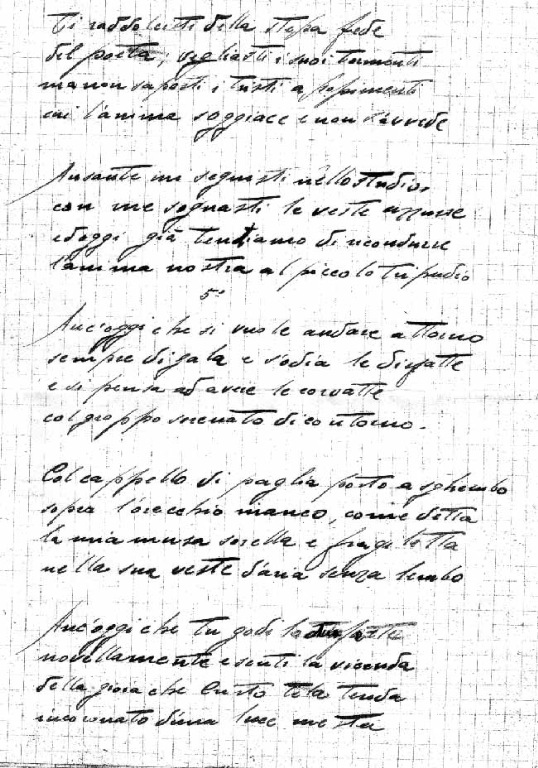 Ti raddolcisti della stessa fede
del poeta; vegliasti i suoi tormenti
ma non sapesti i tristi
cui l'anima soggiace e non s'avvede
Ansante mi seguisti nello studio,
con me sognasti le veste azzurre
ed oggi già tendiamo di ricondurre
l'anima nostra al piccolo tripudio
5°
Anc'oggi che si vuole andare attorno
sempre di gala e s'odia le
e si pensa ad avere le corvatte
col groppo serenato di contorno.
Col cappello di paglia posto a sghembo
sopra l'orecchio manco, come detta
la mia musa sorella e fragiletta
nella sua veste d'aria senza lembo
Anc'oggi che tu godi la
novellamente e senti la vicenda
della gioia che Cristo te la tenda
incoronato d'una luce mesta